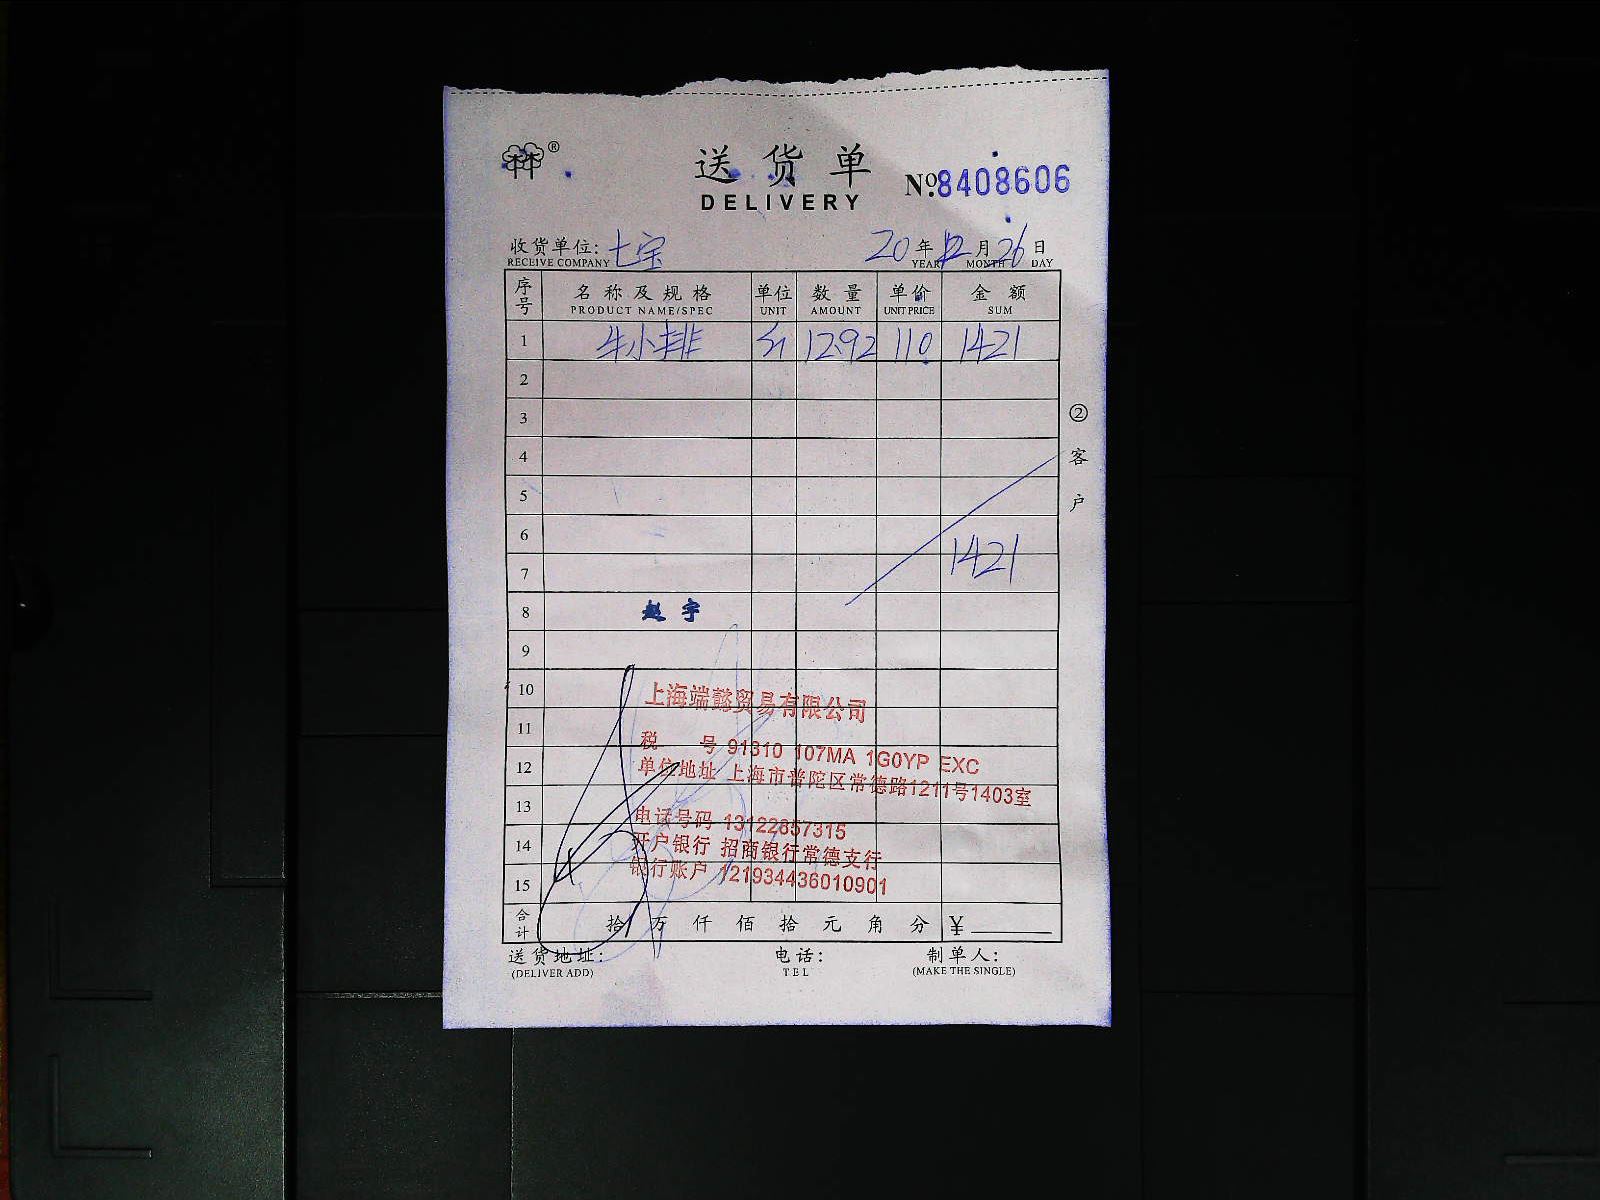 ®
送货单
DELIVERY
No.8408606
收货单位: 七宝 20年12月26日
RECEIVE COMPANY YEAR MONTH DAY
序号 名称及规格 单位 数量 单价 金额
PRODUCT NAME/SPEC UNIT AMOUNT UNIT PRICE SUM
1 牛小排 12.92 110 1421
2
3
4
5
6
1421
7
8 赵宇
9
10
上海端懿贸易有限公司
11
税 号 91310 107MA 1G0YP EXC
12
单位地址 上海市普陀区常德路1211号1403室
13
电话号码 13122857315
14
开户银行 招商银行常德支行
15
银行账户 121934436010901
合计 拾 万 仟 佰 拾 元 角 分 ¥
送货地址: 电话: 制单人:
(DELIVER ADD) TEL (MAKE THE SINGLE)
②客户